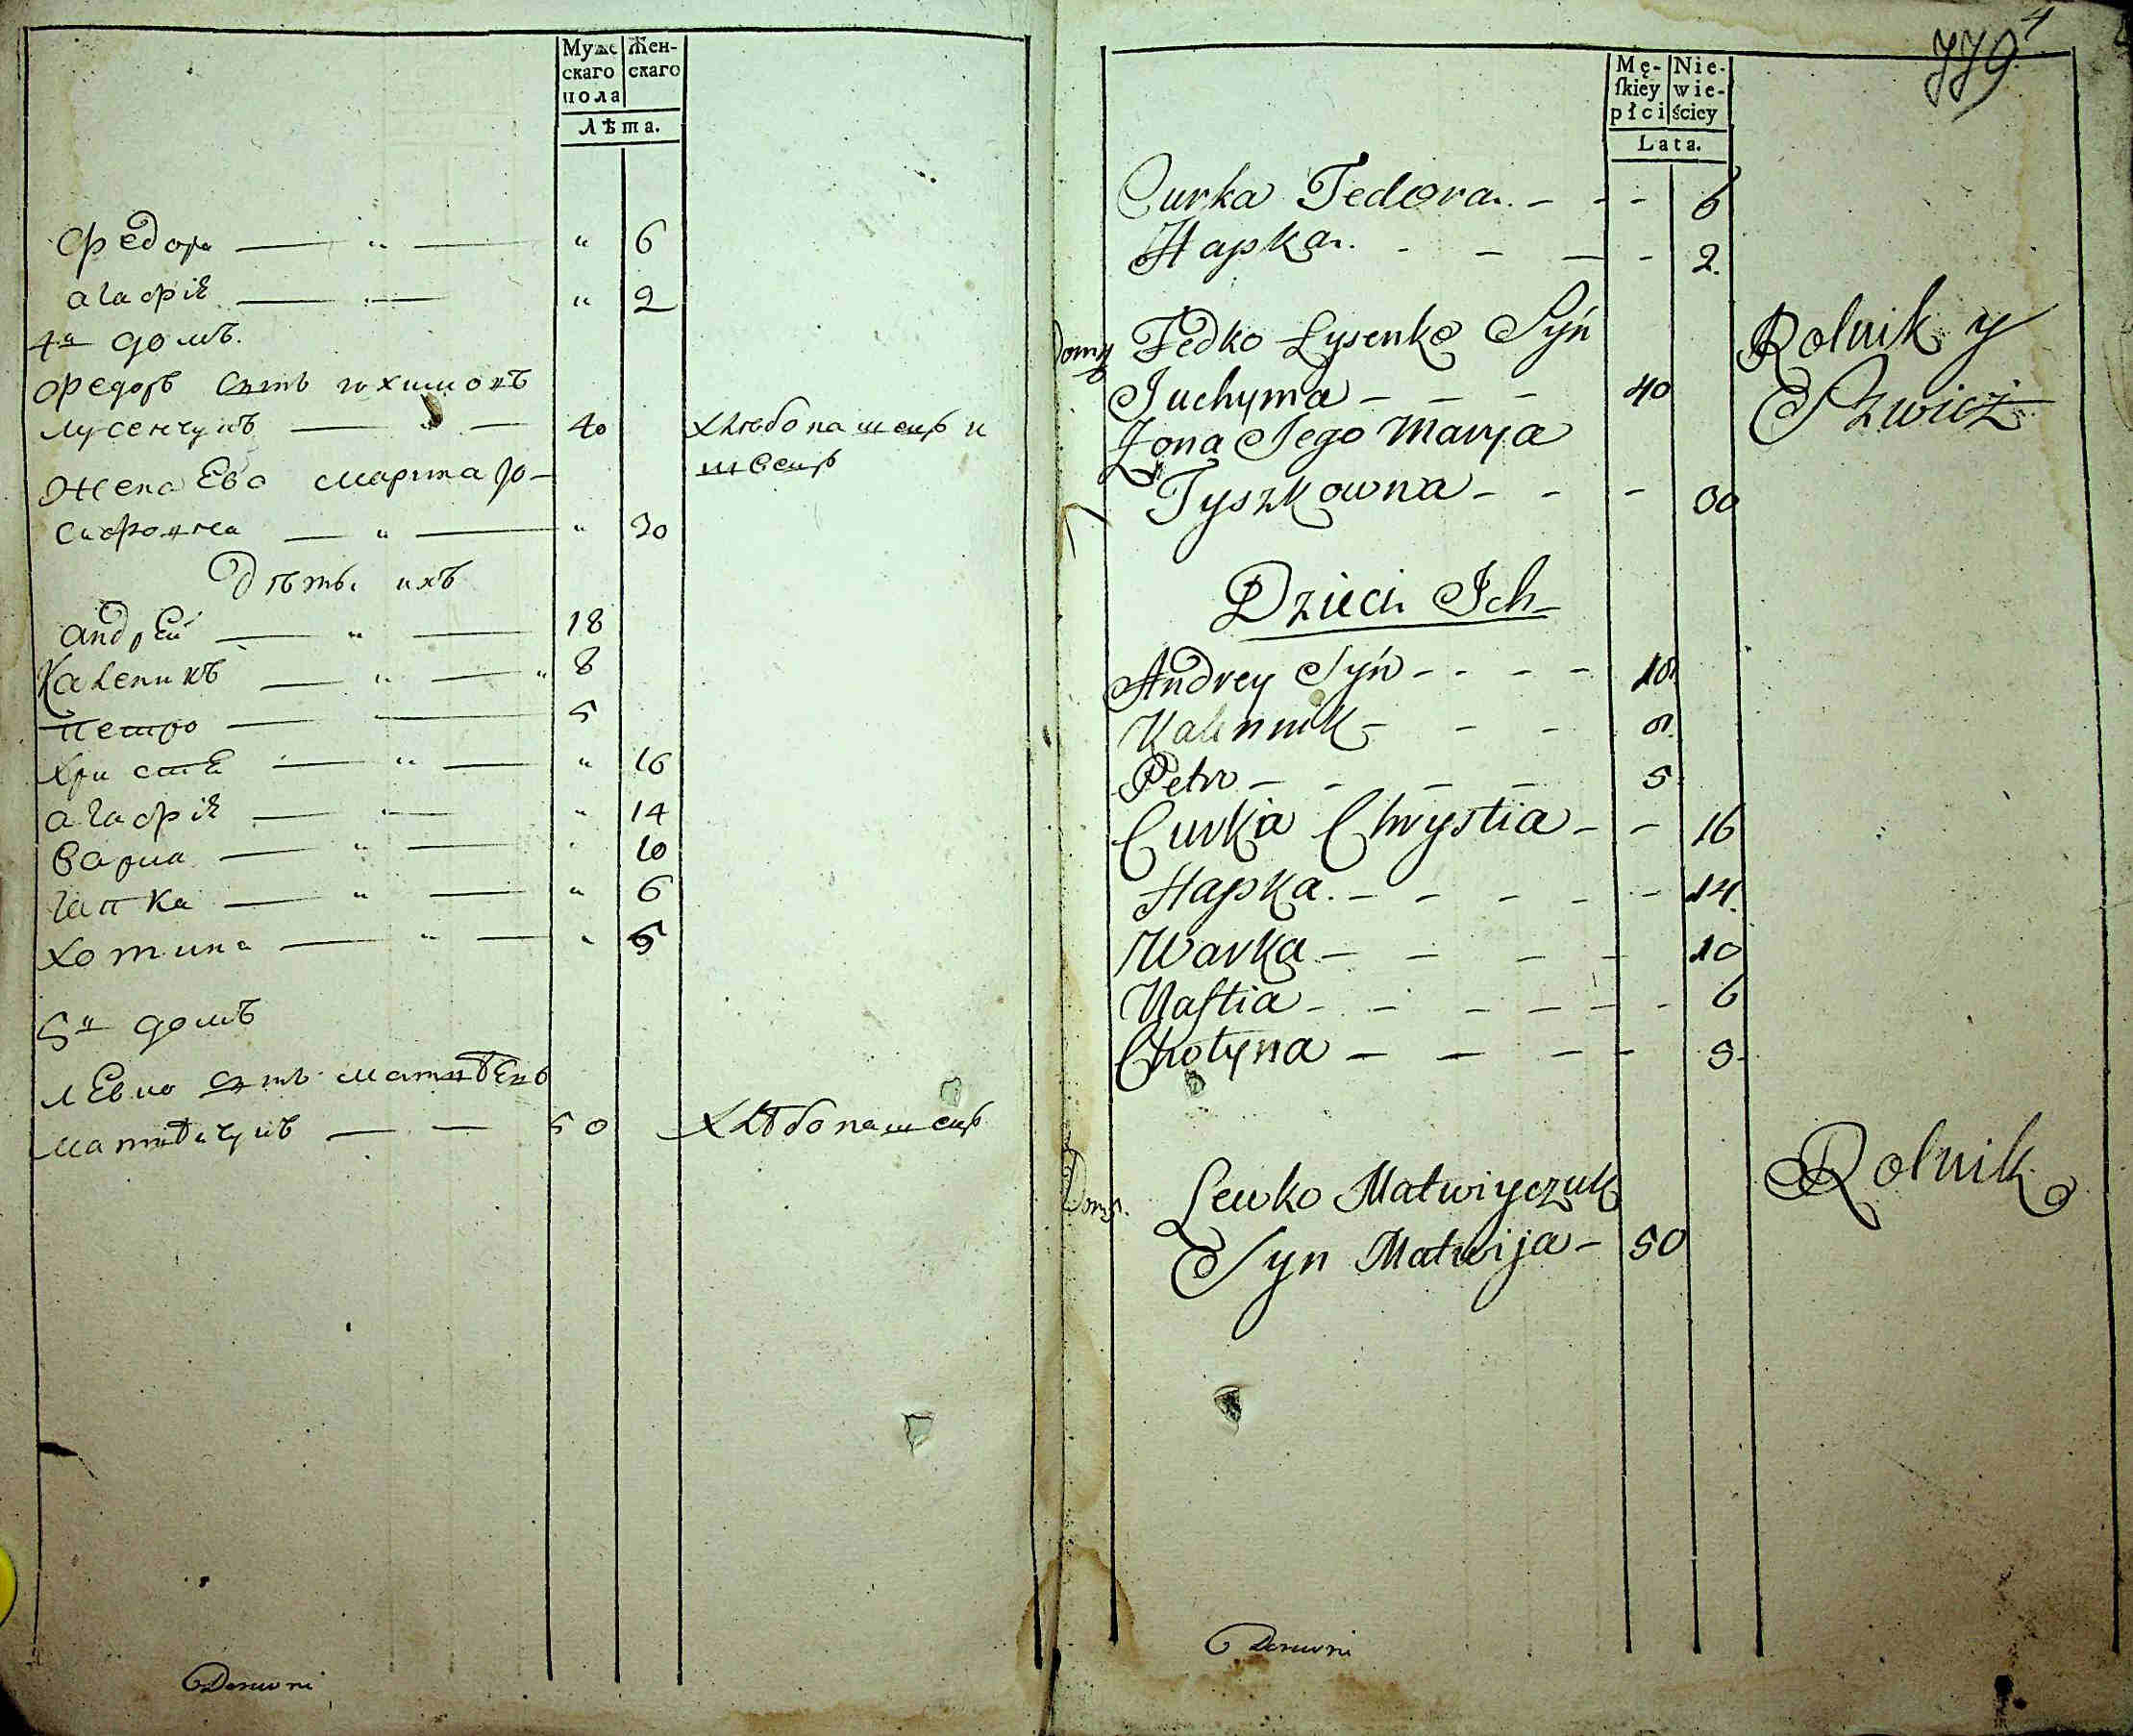 Муже
скаго
пола
Жен-
скаго
Лѣта.
Федора — " — " 6
агафiя — " — " 2
4й домъ.
Федоръ сынъ юхимовъ
лусенчукъ — " — 40 хлебопашецъ и
швецъ
Жена Ево марина
— " — " 30
Дѣти ихъ
андрей — " — 18
Каленикъ — " — " 8
петро — " — 5
христя — " — " 16
агафiя — " — " 14
Варка — " — " 10
гапка — " — " 6
хотина — " — " 5
5й домъ
левко сынъ матвѣевъ
матвѣичукъ — — 50 хлѣбопашецъ
Deruvni
779
4
Mę-
ſkiey
płci
Nie-
wie-
ściey
Lata.
Curka Fedora. - - - 6
Hapka. - - - - 2.
Fedko Łysenko Syń
Juchyma - - - 40
Rolnik y
Szwiec
Żona Jego Marya
Tyszkowna - - - 30
Dzieci Ich
Andrey Syń - - - - 18.
Kalinnik - - - 8.
Petro - - - - 5.
Curka Chrystia - - 16
Hapka. - - - - - 14.
Warka - - - - 10
Naſtia - - - - - - 6
Chotyna - - - - 5.
Lewko Matwiyczuk
Rolnik
Syn Matwija - 50